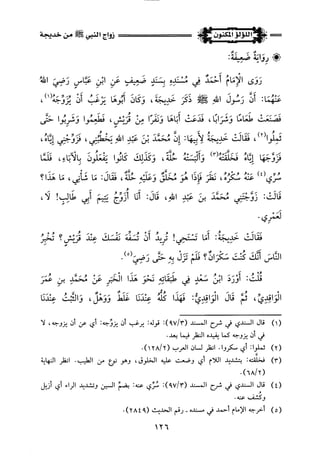 اللؤلؤ المكنون
زواج النبي ﷺ من خديجة
* رواية ضعيفة:
روى الإمام أحمد في مسنده بسند ضعيف عن ابن عباس رضي الله
عنهما: أن رسول الله ﷺ ذكر خديجة، وكان أبوها يرغب أن يزوجه(١)،
فصنعت طعاما وشرابا، فدعت أباها ونفرا من قريش، فطعموا وشربوا حتى
ثملوا(٢)، فقالت خديجة لأبيها: إن محمد بن عبد الله يخطبني، فزوجني إياه،
فزوجها إياه فخلقته(٣) وألبسته حلة، وكذلك كانوا يفعلون بالآباء، فلما
سري(٤) عنه سكره، نظر فإذا هو مخلق وعليه حلة، فقال: ما شأني، ما هذا؟
قالت: زوجتني محمد بن عبد الله، قال: أنا أزوج يتيم أبي طالب! لا،
لعمري.
فقالت خديجة: أما تستحي! تريد أن تسفه نفسك عند قريش؟ تخبر
الناس أنك كنت سكران؟ فلم تزل به حتى رضي(٥).
قلت: أورد ابن سعد في طبقاته نحو هذا الخبر عن محمد بن عمر
الواقدي، ثم قال الواقدي: فهذا كله عندنا غلط ووهل، والثبت عندنا
(١) قال السندي في شرح المسند (٩٧/٣): قوله: يرغب أن يزوجه: أي عن أن يزوجه، لا
في أن يزوجه كما يفيده النظر فيما بعد.
(٢) ثملوا: أي سكروا. انظر لسان العرب (١٢٨/٢).
(٣) فخلقته: بتشديد اللام أي وضعت عليه الخلوق، وهو نوع من الطيب. انظر النهاية
(٦٨/٢).
(٤) قال السندي في شرح المسند (٩٧/٣): سري عنه: بضم السين وتشديد الراء أي أزيل
وكشف عنه.
(٥) أخرجه الإمام أحمد في مسنده ـ رقم الحديث (٢٨٤٩).
١٢٦